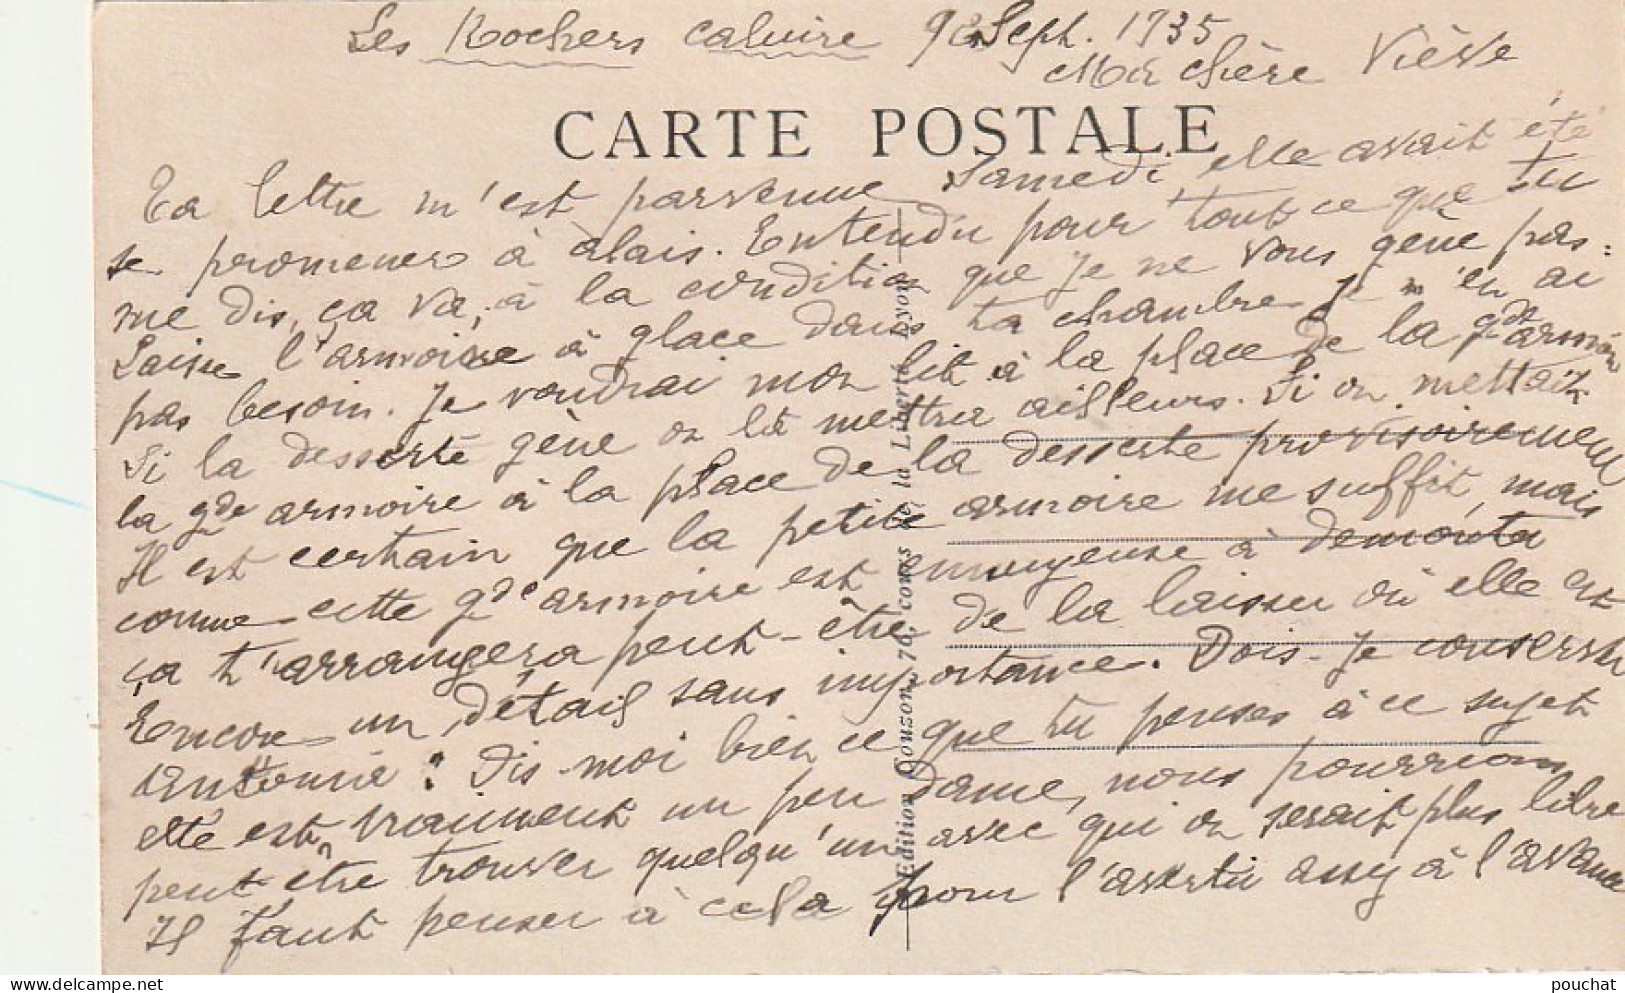 Les Rochers Caluire 9 Sept. 1935
Ma chère Viève
CARTE POSTALE
Ta lettre m'est parvenue Samedi elle avait été
se promener à Alais. Entendu pour tout ce que tu
me dis, ça va, à la condition que je ne vous gène pas.
Laisse l'armoire à glace dans ta chambre, je m'en ai
pas besoin. Je voudrai mon lit à la place de la gde armoire
Si la desserte gène on la mettra ailleurs. Si on mettait
la gde armoire à la place de la desserte provisoirement
Il est certain que la petite armoire me suffit, mais
comme cette gde armoire est ennuyeuse à démonter
ça t'arrangera peut-être de la laisser où elle est
Encore un détail sans importance. Dois-je conserver
Antonia ? Dis-moi bien ce que tu penses à ce sujet
elle est vraiment un peu dame, nous pourrions
peut être trouver quelqu'un avec qui on serait plus libre
Il faut penser à cela pour l'avertir assez à l'avance
Edition Gouzon, 76, cours de la Liberté Lyon
pouchat